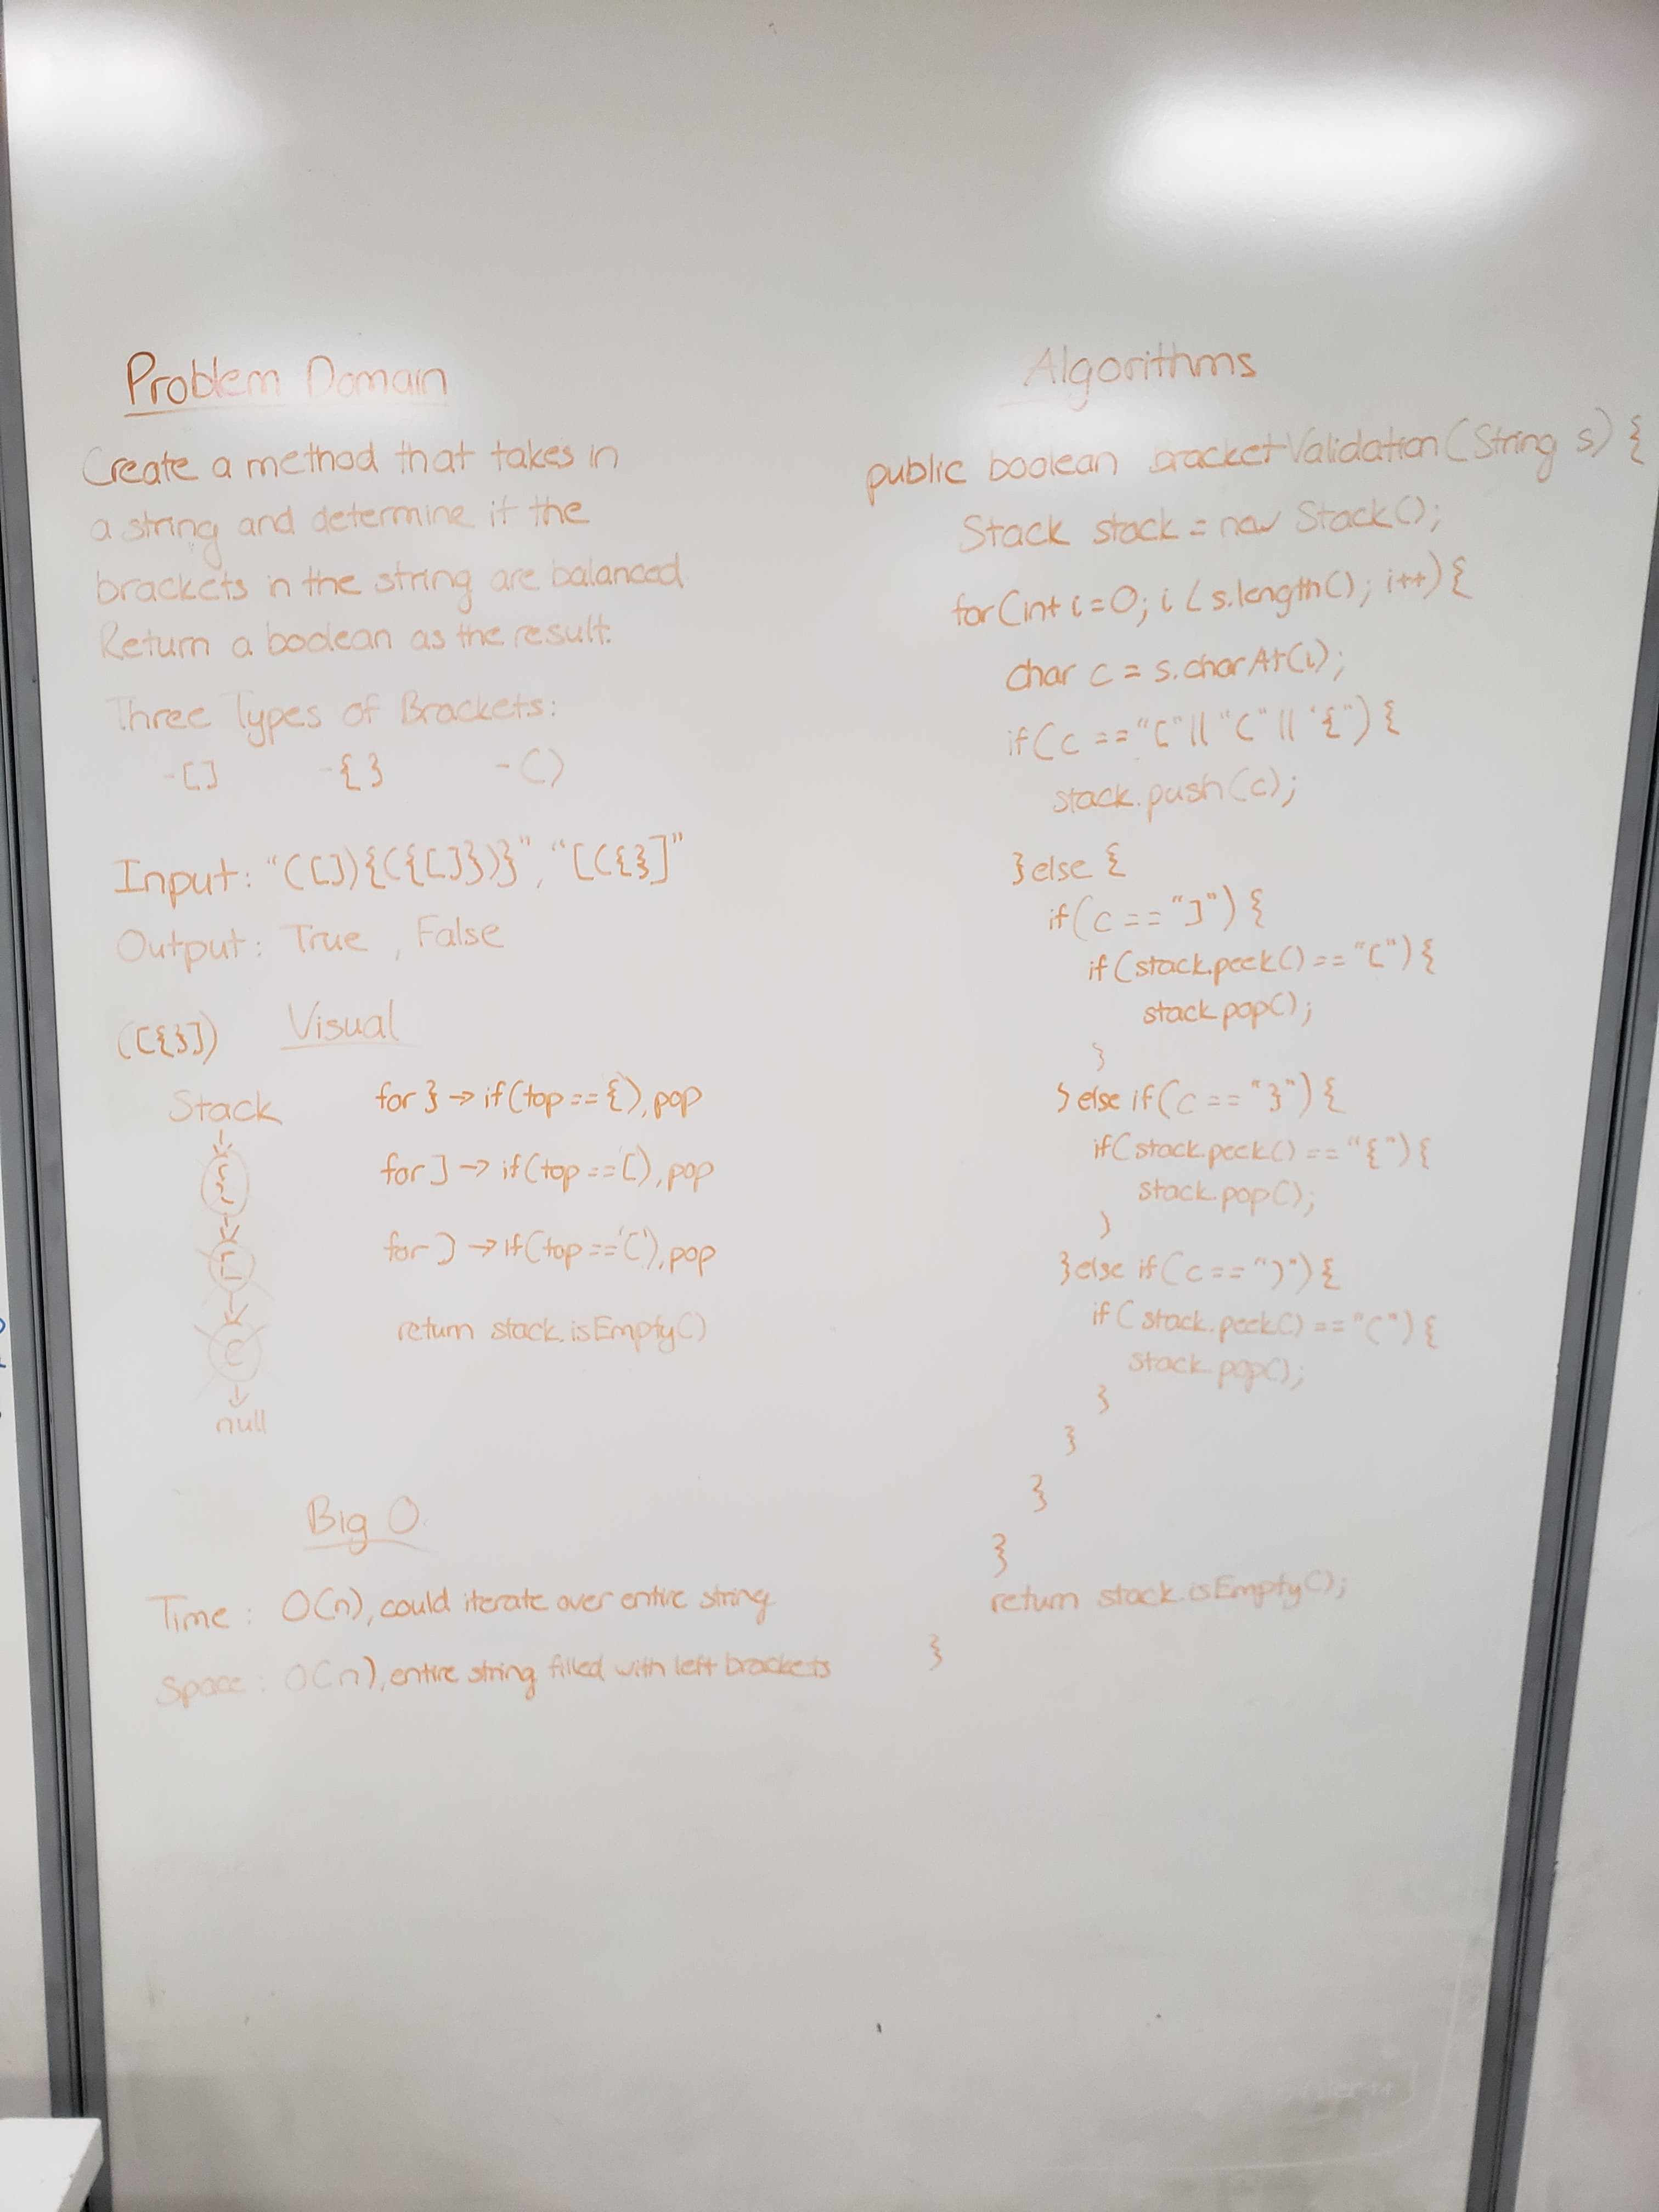 Problem Domain
Create a method that takes in
a string and determine if the
brackets in the string are balanced.
Return a boolean as the result.
Three Types of Brackets:
-[] -{} -()
Input: "([]){({[]})}", "[({}]"
Output: True, False
([{}]) Visual
Stack
{
[
(
null
for } → if(top=={), pop
for ] → if(top==[), pop
for ) → if(top=='('), pop
return stack.isEmpty()
Big O
Time: O(n), could iterate over entire string
Space: O(n), entire string filled with left brackets
Algorithms
public boolean bracketValidation(String s) {
Stack stack = new Stack();
for(int i=0; i < s.length(); i++) {
char c = s.charAt(i);
if(c == "[" || "(" || "{") {
stack.push(c);
}else {
if(c == "]") {
if(stack.peek() == "[") {
stack.pop();
}
}else if(c == "}") {
if(stack.peek() == "{") {
stack.pop();
}
}else if(c == ")") {
if(stack.peek() == "(") {
stack.pop();
}
}
}
}
return stack.isEmpty();
}